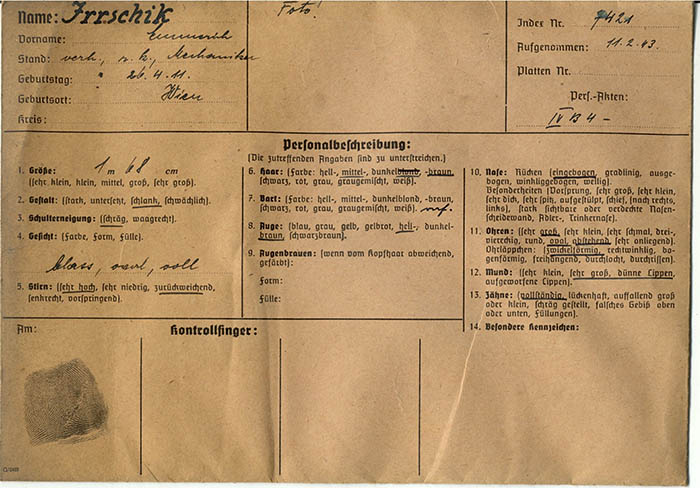 Name: Irrschik
Vorname: Emmerich
Stand: verh., r. k., Mechaniker
Geburtstag: 26. 4. 11.
Geburtsort: Wien
Kreis:
Foto!
Index Nr. 7421
Aufgenommen: 11. 2. 43.
Platten Nr.
Pers.-Akten:
IV B 4 -
Personalbeschreibung:
(Die zutreffenden Angaben sind zu unterstreichen.)
1. Größe: 1 m 68 cm
(sehr klein, klein, mittel, groß, sehr groß).
2. Gestalt: (stark, untersetzt, schlank, schwächlich).
3. Schulterneigung: (schräg, waagrecht).
4. Gesicht: (Farbe, Form, Fülle).
blass, oval, voll
5. Stirn: (sehr hoch, sehr niedrig, zurückweichend,
senkrecht, vorspringend).
6. Haar: (Farbe: hell-, mittel-, dunkelblond, -braun,
schwarz, rot, grau, graugemischt, weiß).
7. Bart: (Farbe: hell-, mittel-, dunkelblond, -braun,
schwarz, rot, grau, graugemischt, weiß).
8. Auge: (blau, grau, gelb, gelbrot, hell-, dunkel-
braun, schwarzbraun).
9. Augenbrauen: (wenn vom Kopfhaar abweichend,
gefärbt):
Form:
Fülle:
10. Nase: Rücken (eingebogen, gradlinig, ausge-
bogen, winkliggebogen, wellig).
Besonderheiten (Vorsprung, sehr groß, sehr klein,
sehr dick, sehr spitz, aufgestülpt, schief, [nach rechts,
links], stark sichtbare oder verdeckte Nasen-
scheidewand, Adler-, Trinkernase).
11. Ohren: (sehr groß, sehr klein, sehr schmal, drei-,
viereckig, rund, oval, abstehend, sehr anliegend).
Ohrläppchen: (zwickelförmig, rechtwinklig, bo-
genförmig, freihängend, durchlocht, durchrissen).
12. Mund: (sehr klein, sehr groß, dünne Lippen,
aufgeworfene Lippen).
13. Zähne: (vollständig, lückenhaft, auffallend groß
oder klein, schräg gestellt, falsches Gebiß oben
oder unten, Füllungen).
14. Besondere Kennzeichen:
Am:
Kontrollfinger: